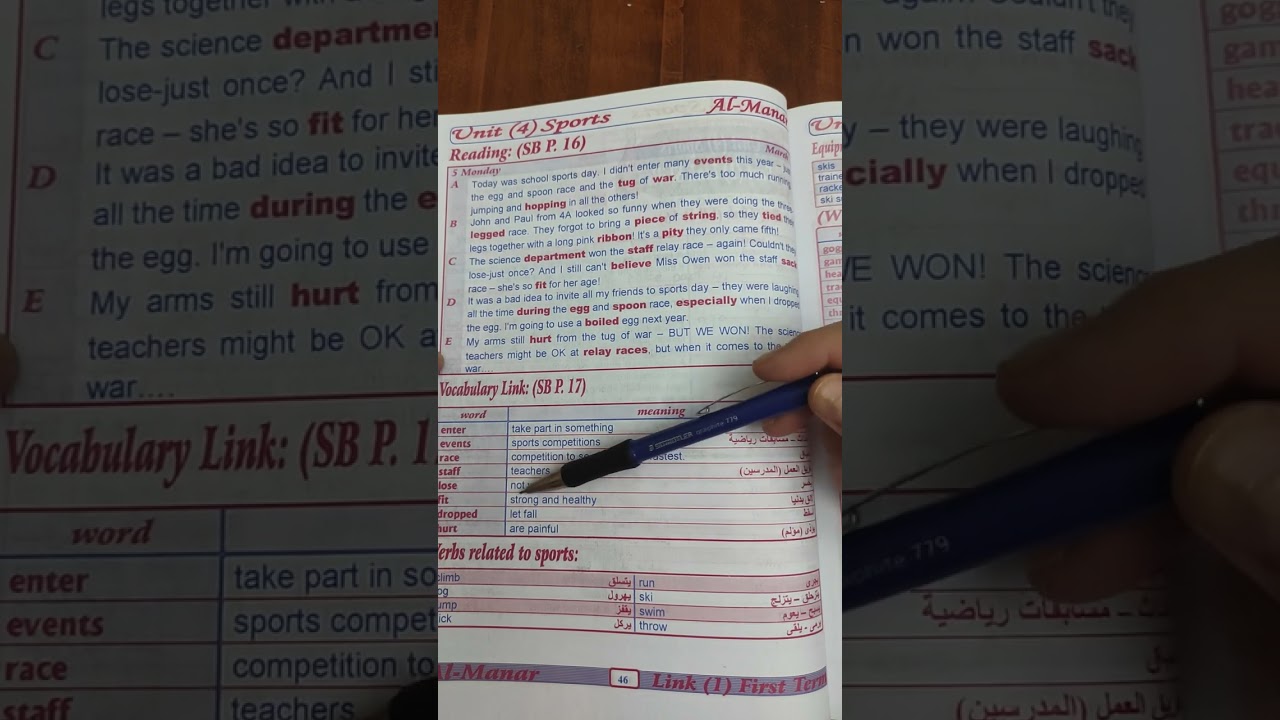 Unit (4) Sports
Al-Manar
Reading: (SB P. 16)
5 Monday
March
A Today was school sports day. I didn't enter many events this year – just
the egg and spoon race and the tug of war. There's too much running,
jumping and hopping in all the others!
B John and Paul from 4A looked so funny when they were doing the three
legged race. They forgot to bring a piece of string, so they tied their
legs together with a long pink ribbon! It's a pity they only came fifth!
C The science department won the staff relay race – again! Couldn't they
lose-just once? And I still can't believe Miss Owen won the staff sack
race – she's so fit for her age!
D It was a bad idea to invite all my friends to sports day – they were laughing
all the time during the egg and spoon race, especially when I dropped
the egg. I'm going to use a boiled egg next year.
E My arms still hurt from the tug of war – BUT WE WON! The science
teachers might be OK at relay races, but when it comes to the
war....
Vocabulary Link: (SB P. 17)
word meaning
enter take part in something
events sports competitions ـ مسابقات رياضية
race competition to
staff teachers فريق العمل (المدرسين)
lose not
fit strong and healthy لائق بدنيا
dropped let fall
hurt are painful (مؤلم)
Verbs related to sports:
climb يتسلق run يجرى
jog يهرول ski يتزحلق – يتزلج
jump يقفز swim يسبح – يعوم
kick يركل throw يرمى - يلقى
Al-Manar 46 Link (1) First Term
Equip
skis
ski